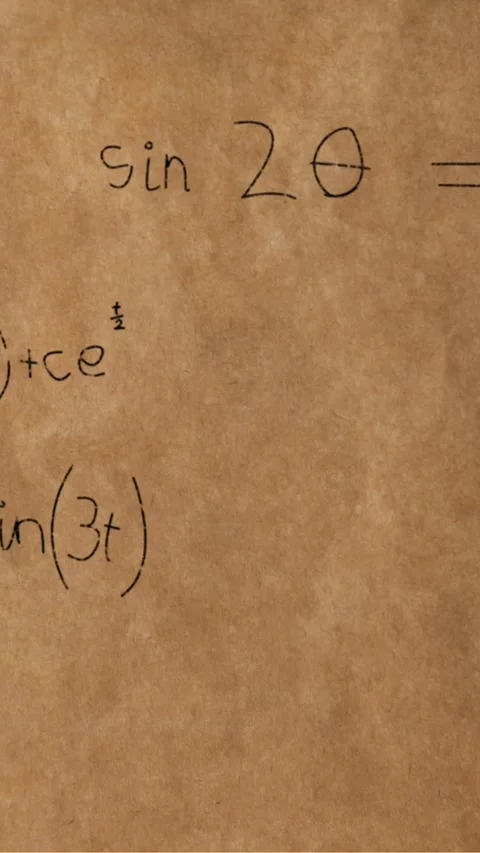 sin 2θ =
)+ce^{t/2}
in(3t)